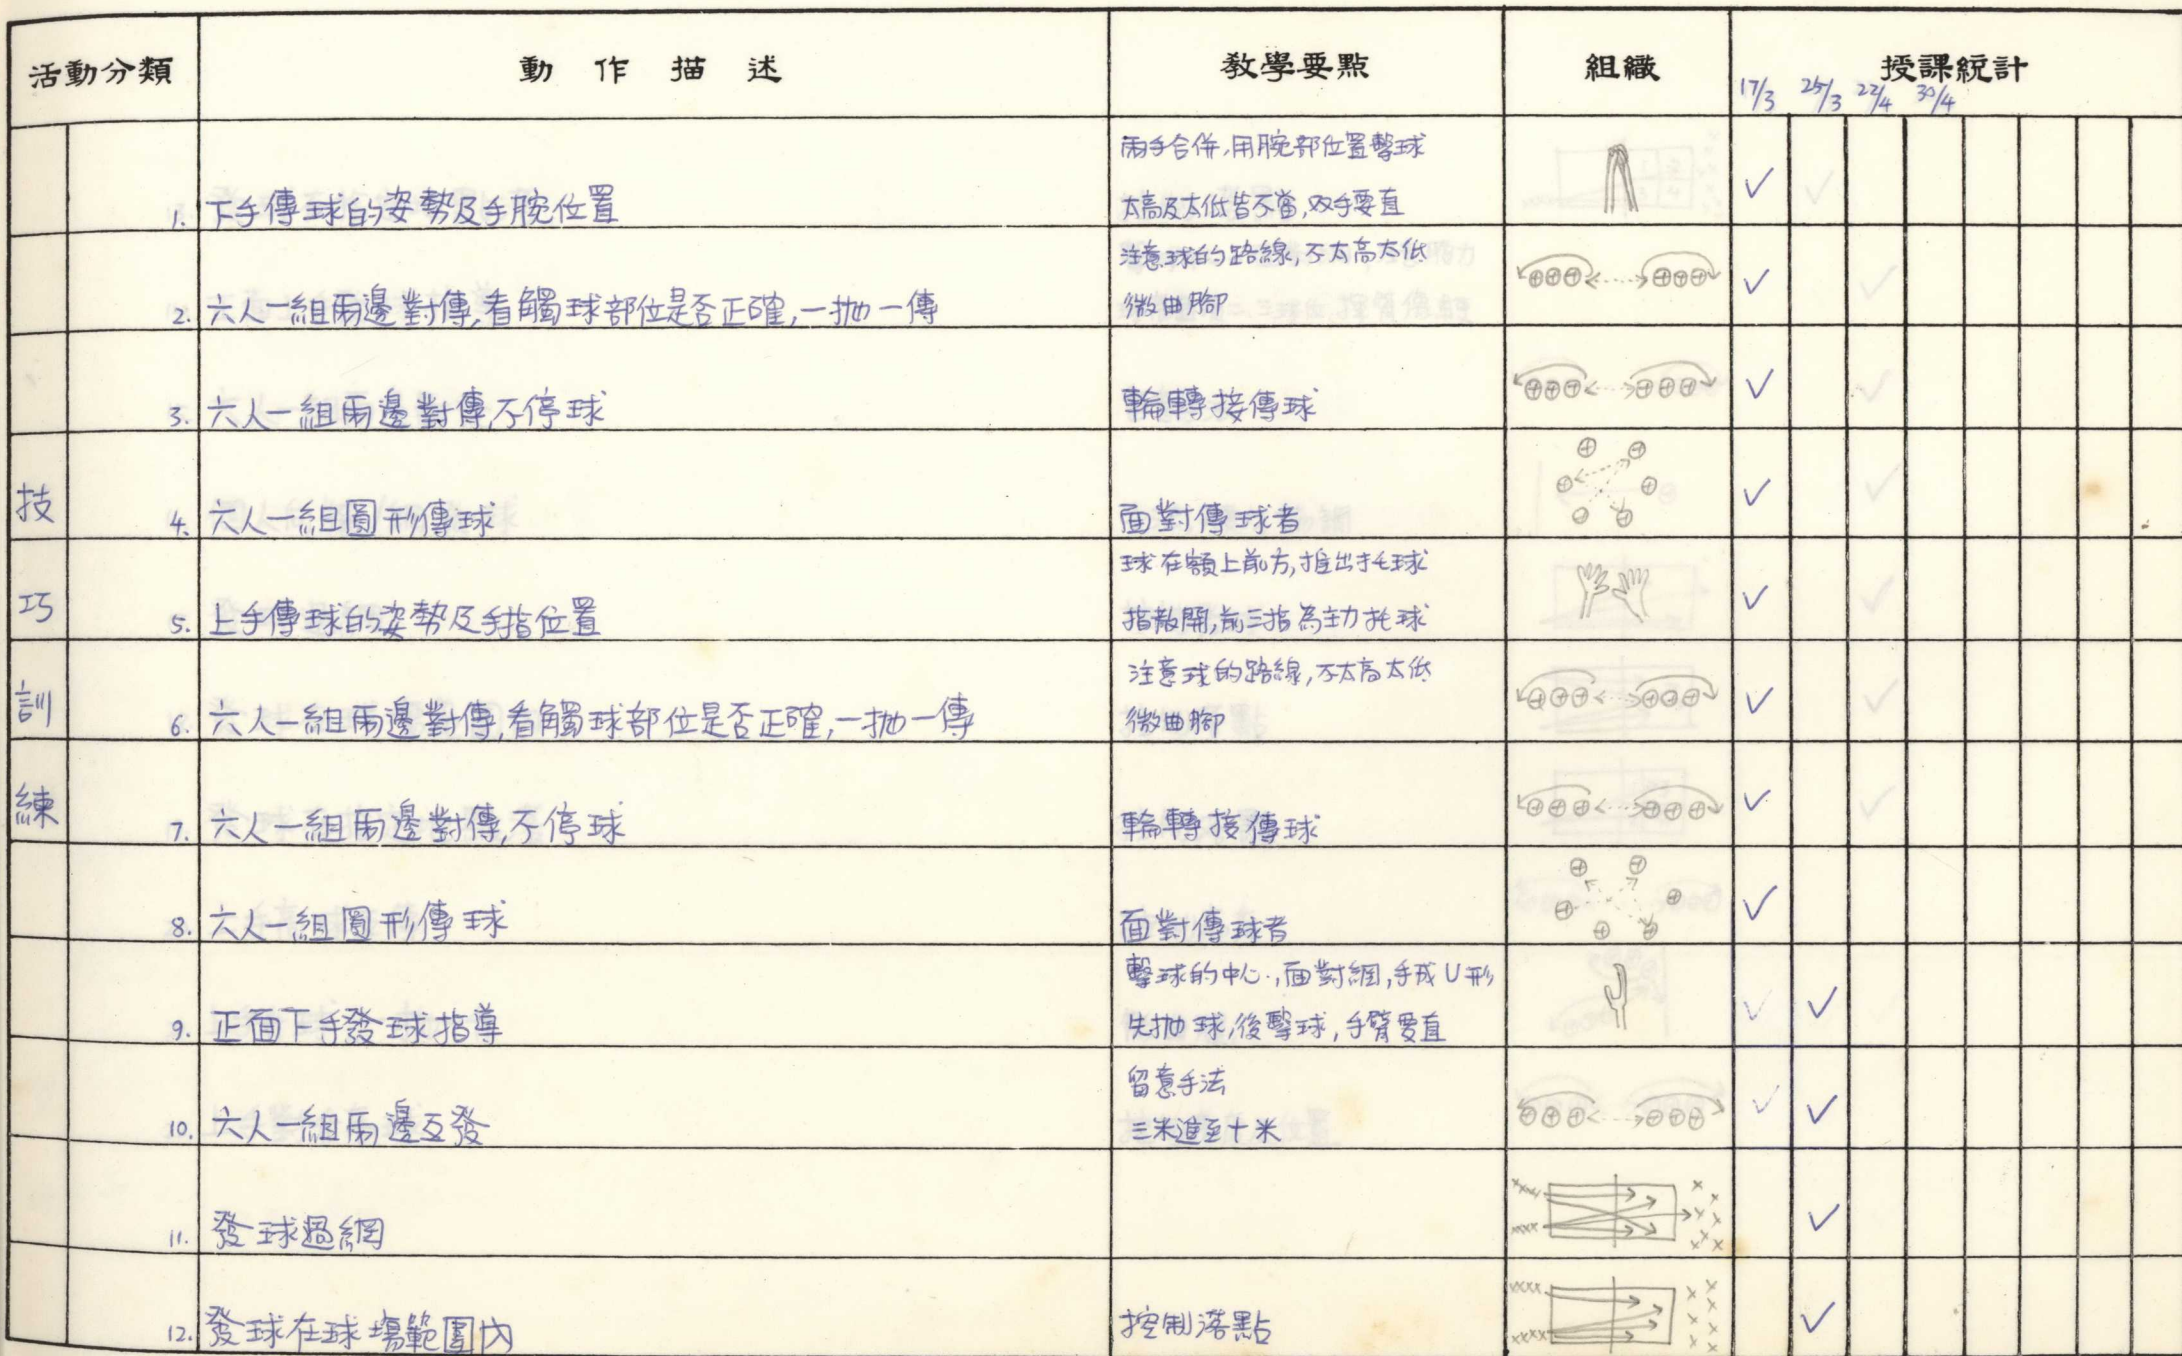 活動分類 動作描述 教學要點 組織 授課統計
17/3 25/3 22/4 30/4
技巧訓練
1. 下手傳球的姿勢及手腕位置
兩手合併,用腕部位置擊球
太高及太低皆不當,双手要直
2. 六人一組兩邊對傳,看觸球部位是否正確,一抛一傳
注意球的路線,不太高太低
微曲腳
3. 六人一組兩邊對傳,不停球
輪轉接傳球
4. 六人一組圓形傳球
面對傳球者
5. 上手傳球的姿勢及手指位置
球在額上前方,推出托球
指散開,前三指為主力托球
6. 六人一組兩邊對傳,看觸球部位是否正確,一抛一傳
注意球的路線,不太高太低
微曲腳
7. 六人一組兩邊對傳,不停球
輪轉接傳球
8. 六人一組圓形傳球
面對傳球者
9. 正面下手發球指導
擊球的中心,面對網,手成U形
先抛球,後擊球,手臂要直
10. 六人一組兩邊互發
留意手法
三米進至十米
11. 發球過網
12. 發球在球場範圍內
控制落點